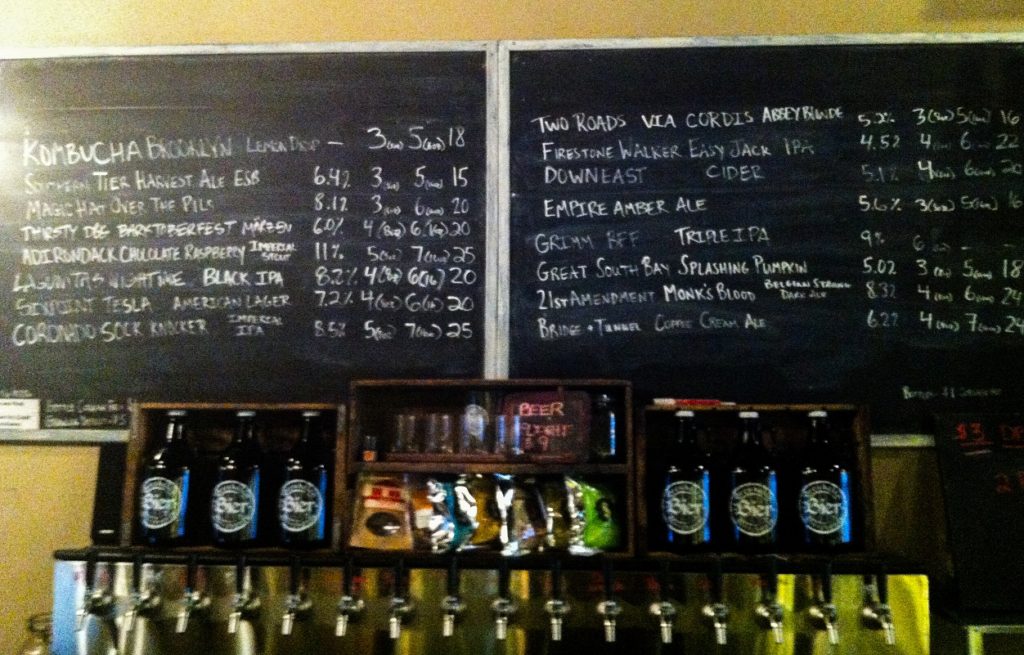 KOMBUCHA BROOKLYN LEMON DROP — 3 5 18
SOUTHERN TIER HARVEST ALE ESB 6.4% 3 5 15
MAGIC HAT OVER THE PILS 8.1% 3 6 20
THIRSTY DOG BARKTOBERFEST MÄRZEN 6.0% 4 6 20
ADIRONDACK CHOCOLATE RASPBERRY IMPERIAL STOUT 11% 5 7 25
LAGUNITAS NIGHTTIME BLACK IPA 8.2% 4 6 20
SIXPOINT TESLA AMERICAN LAGER 7.2% 4 6 20
CORONADO SOCK KNOCKER IMPERIAL IPA 8.5% 5 7 25
TWO ROADS VIA CORDIS ABBEY BLONDE 5.2% 3 5 16
FIRESTONE WALKER EASY JACK IPA 4.5% 4 6 22
DOWNEAST CIDER 5.1% 4 6 20
EMPIRE AMBER ALE 5.6% 3 5 16
GRIMM BFF TRIPLE IPA 9% 6 — —
GREAT SOUTH BAY SPLASHING PUMPKIN 5.0% 3 5 18
21ST AMENDMENT MONK'S BLOOD BELGIAN STRONG DARK ALE 8.3% 4 6 24
BRIDGE + TUNNEL COFFEE CREAM ALE 6.2% 4 7 24
BEER
FLIGHT
$9
$3
Bier
Bier
Bier
Bier
Bier
Bier